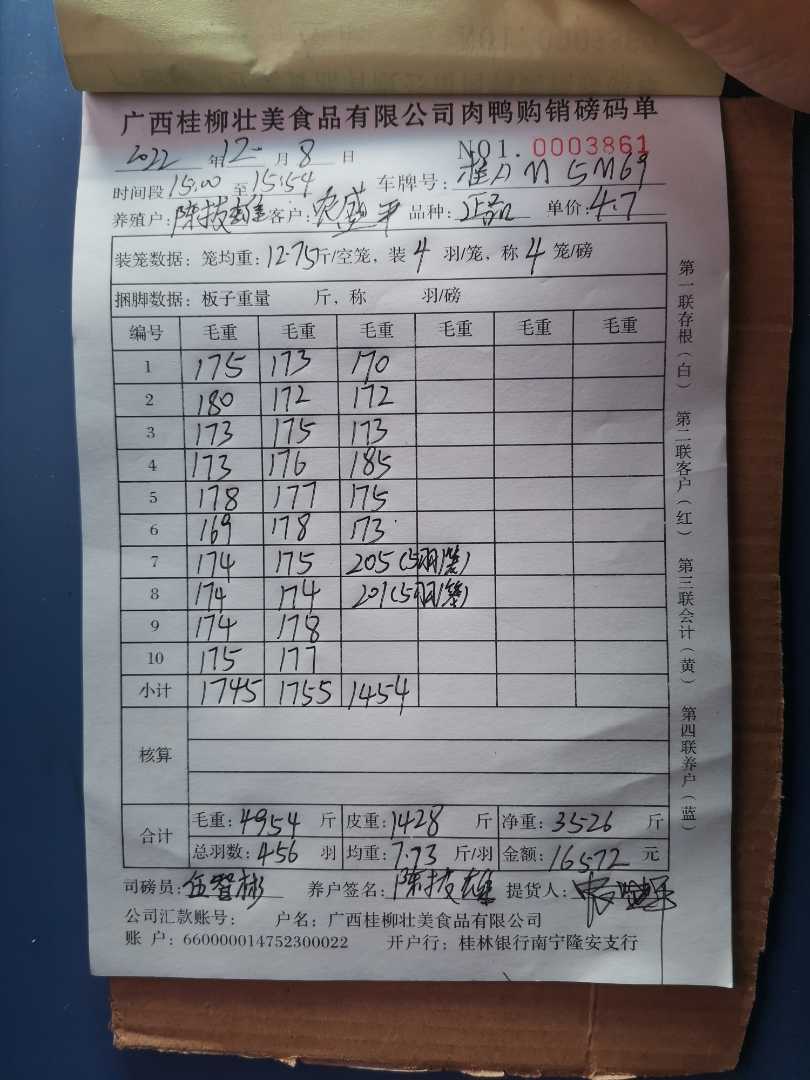 广西桂柳壮美食品有限公司肉鸭购销磅码单
2022 年 12 月 8 日 NO1. 0003861
时间段 15:00 至 15:54 车牌号: 桂A M5M69
养殖户: 陈技雄 客户: 农盛平 品种: 正品 单价: 4.7
装笼数据: 笼均重: 12.75 斤/空笼, 装 4 羽/笼, 称 4 笼/磅
捆脚数据: 板子重量 斤, 称 羽/磅
编号 毛重 毛重 毛重 毛重 毛重 毛重
1 175 173 170
2 180 172 172
3 173 175 173
4 173 176 185
5 178 177 175
6 169 178 173
7 174 175 205 (5羽/笼)
8 174 174 201 (5羽/笼)
9 174 178
10 175 177
小计 1745 1755 1454
核算
合计 毛重: 4954 斤 皮重: 1428 斤 净重: 3526 斤
总羽数: 456 羽 均重: 7.73 斤/羽 金额: 16572 元
司磅员: 伍智彬 养户签名: 陈技雄 提货人:
公司汇款账号: 户名: 广西桂柳壮美食品有限公司
账 户: 660000014752300022 开户行: 桂林银行南宁隆安支行
第一联存根(白) 第二联客户(红) 第三联会计(黄) 第四联养户(蓝)